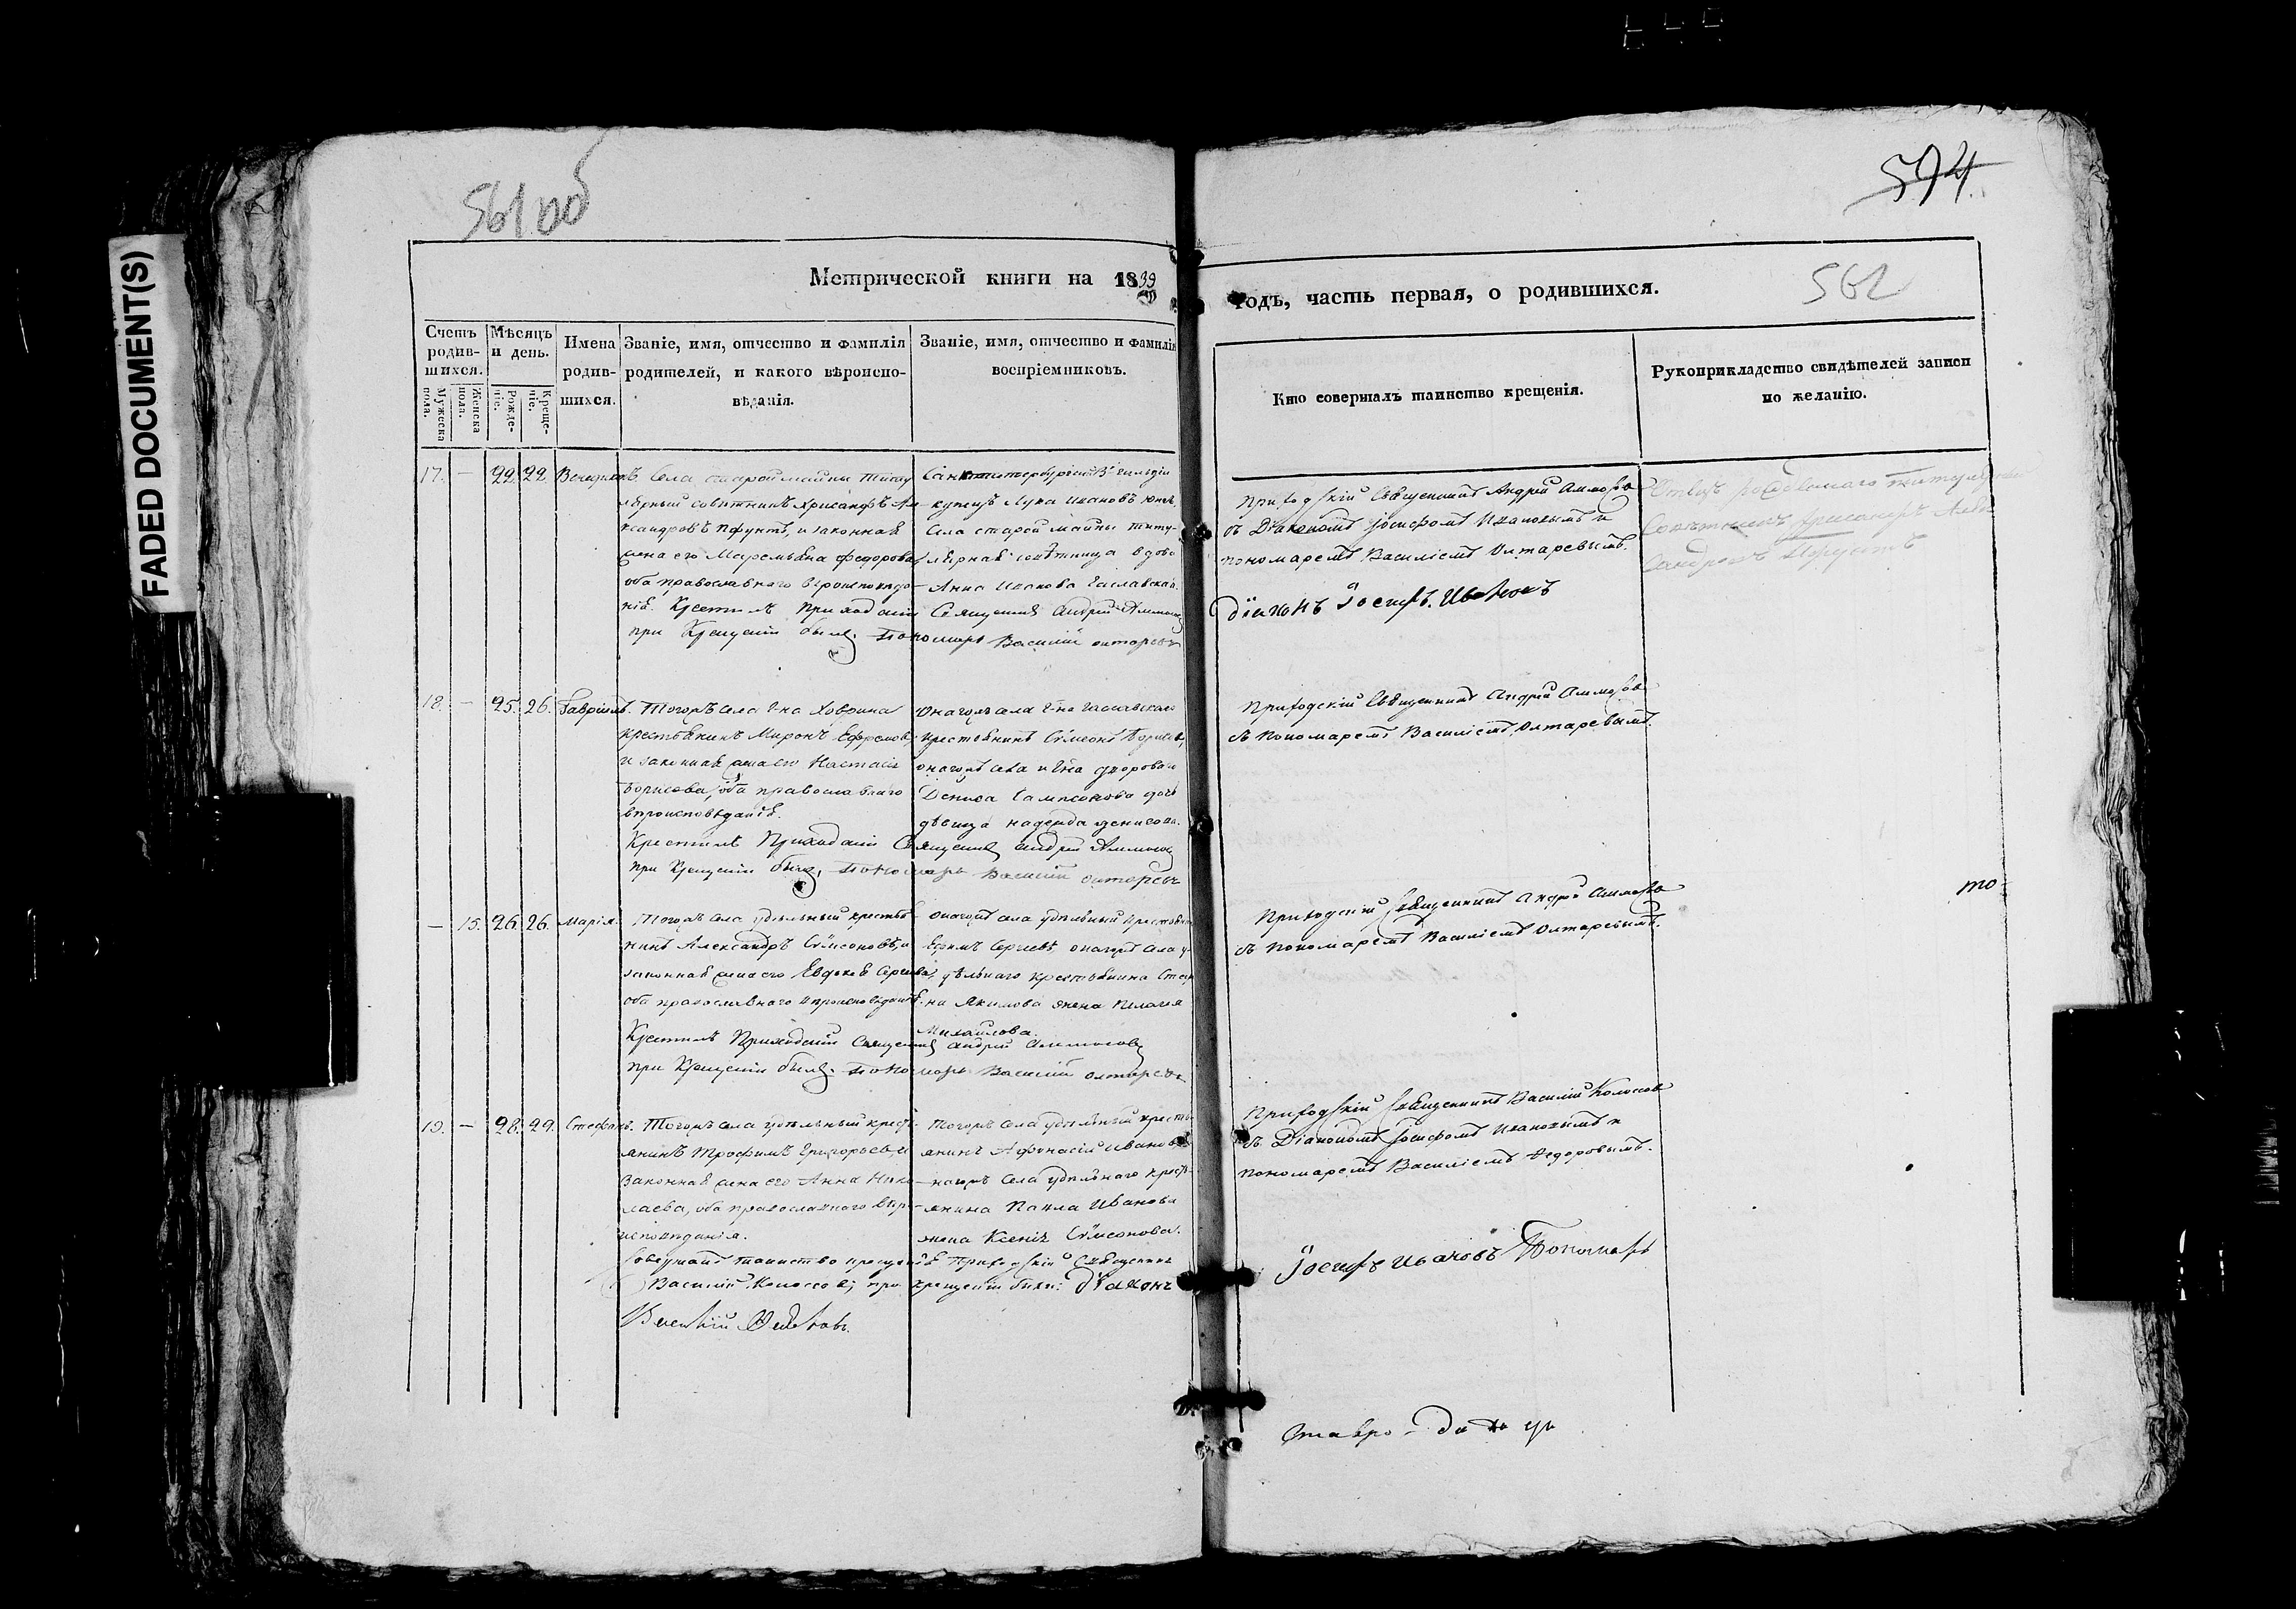 FADED DOCUMENT(S)
561 об
574
562
Метрической книги на 1839
годъ, часть первая, о родившихся.
Счетъ родив-шихся.
Мужеска пола.
Женска пола.
Мѣсяцъ и день.
Рожде-ніе.
Креще-ніе.
Имена родив-шихся.
Званіе, имя, отчество и фамилія
родителей, и какого вѣроиспо-
вѣданія.
Званіе, имя, отчество и фамилія
воспріемниковъ.
Кто совершалъ таинство крещенія.
Рукоприкладство свидѣтелей записи
по желанію.
17. — 22. 22
Села старой майны титу
лярный совѣтникъ Хрисанфъ Але
ксандровъ Пфунтъ, и законная
жена его Маремьяна Федорова
оба православнаго вѣроисповѣда-
нія. Крестилъ приходскій Священникъ Андрей Аммосовъ
при Крещеніи былъ. Пономарь Василій Олтаревъ
купецъ Лука Ивановъ
Села старой майны титу-
лярная совѣтница вдова
Анна Иванова
Приходскій Священникъ Андрей Аммосовъ
съ Діакономъ Іосифомъ Ивановымъ и
пономаремъ Василіемъ Олтаревымъ.
діаконъ Іосифъ Ивановъ
титулярный
Совѣтникъ Хрисанфъ Алек
сандровъ Пфунтъ
18. — 25. 26. Гавріилъ.
Тогожъ села г-на Ховрина
крестьянинъ Миронъ Ефремовъ,
и законная жена его Настасья
Борисова, оба православнаго
вѣроисповѣданія.
Крестилъ Приходскій Священникъ Андрей Аммосовъ
при Крещеніи былъ, Пономарь Василій Олтаревъ
онагожъ села г-на
крестьянинъ Сѷмеонъ
онагожъ села
Дениса Сампсонова дочь
дѣвица Надежда Денисова.
Приходскій Священникъ Андрей Аммосовъ
съ пономаремъ Василіемъ Олтаревымъ.
— 15. 26. 26. Марія.
Тогожъ села удѣльный крестья
нинъ Александръ Сѷмеоновъ, и
законная жена его Евдокія Сергѣева,
оба православнаго вѣроисповѣданія.
Крестилъ Приходскій Священникъ Андрей Аммосовъ
при Крещеніи былъ. Пономарь Василій Олтаревъ
онагожъ села удѣльный крестьянинъ
Ефимъ Сергѣевъ, онагожъ села у-
дѣльнаго крестьянина Степа
на Якимова жена Пелагея
Михайлова.
Приходскій Священникъ Андрей Аммосовъ
съ пономаремъ Василіемъ Олтаревымъ.
то
19. — 28. 29. Стефанъ.
Тогожъ села удѣльный кресть
янинъ Трофимъ Григорьевъ, и
Законная жена его Анна Нико
лаева, оба православнаго вѣро-
исповѣданія.
Совершалъ таинство крещенія Приходскій Священникъ
Василій Колосовъ; при крещеніи были: Діаконъ
Тогожъ села удѣльный кресть
янинъ Афонасій Ивановъ,
онагожъ села удѣльнаго кресть
янина Павла Иванова
жена Ксенія Сѷмеонова.
Приходскій Священникъ Василій Колосовъ
съ Діакономъ Іосифомъ Ивановымъ и
пономаремъ Василіемъ Федоровымъ.
Іосифъ Ивановъ Пономарь
Ставро